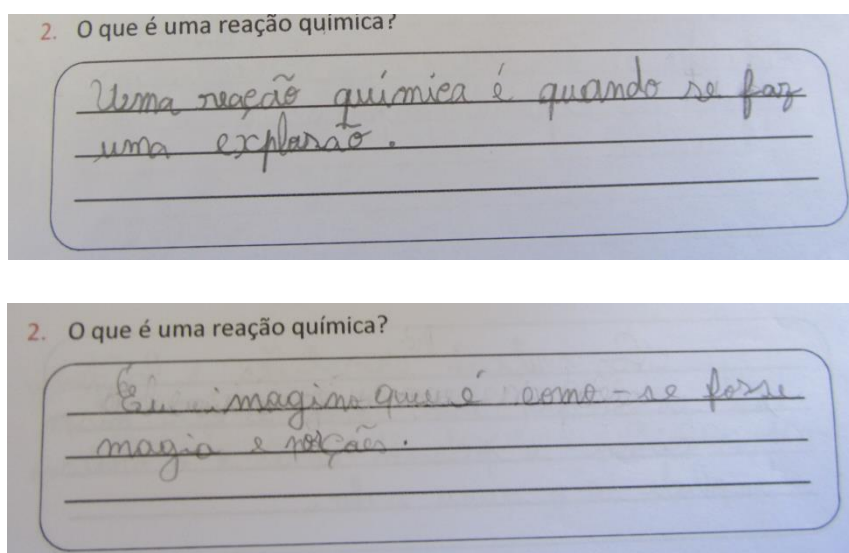 2. O que é uma reação química?
Uma reação química é quando se faz
uma explosão.
2. O que é uma reação química?
Eu imagino que é como-se fosse
magia e poções.